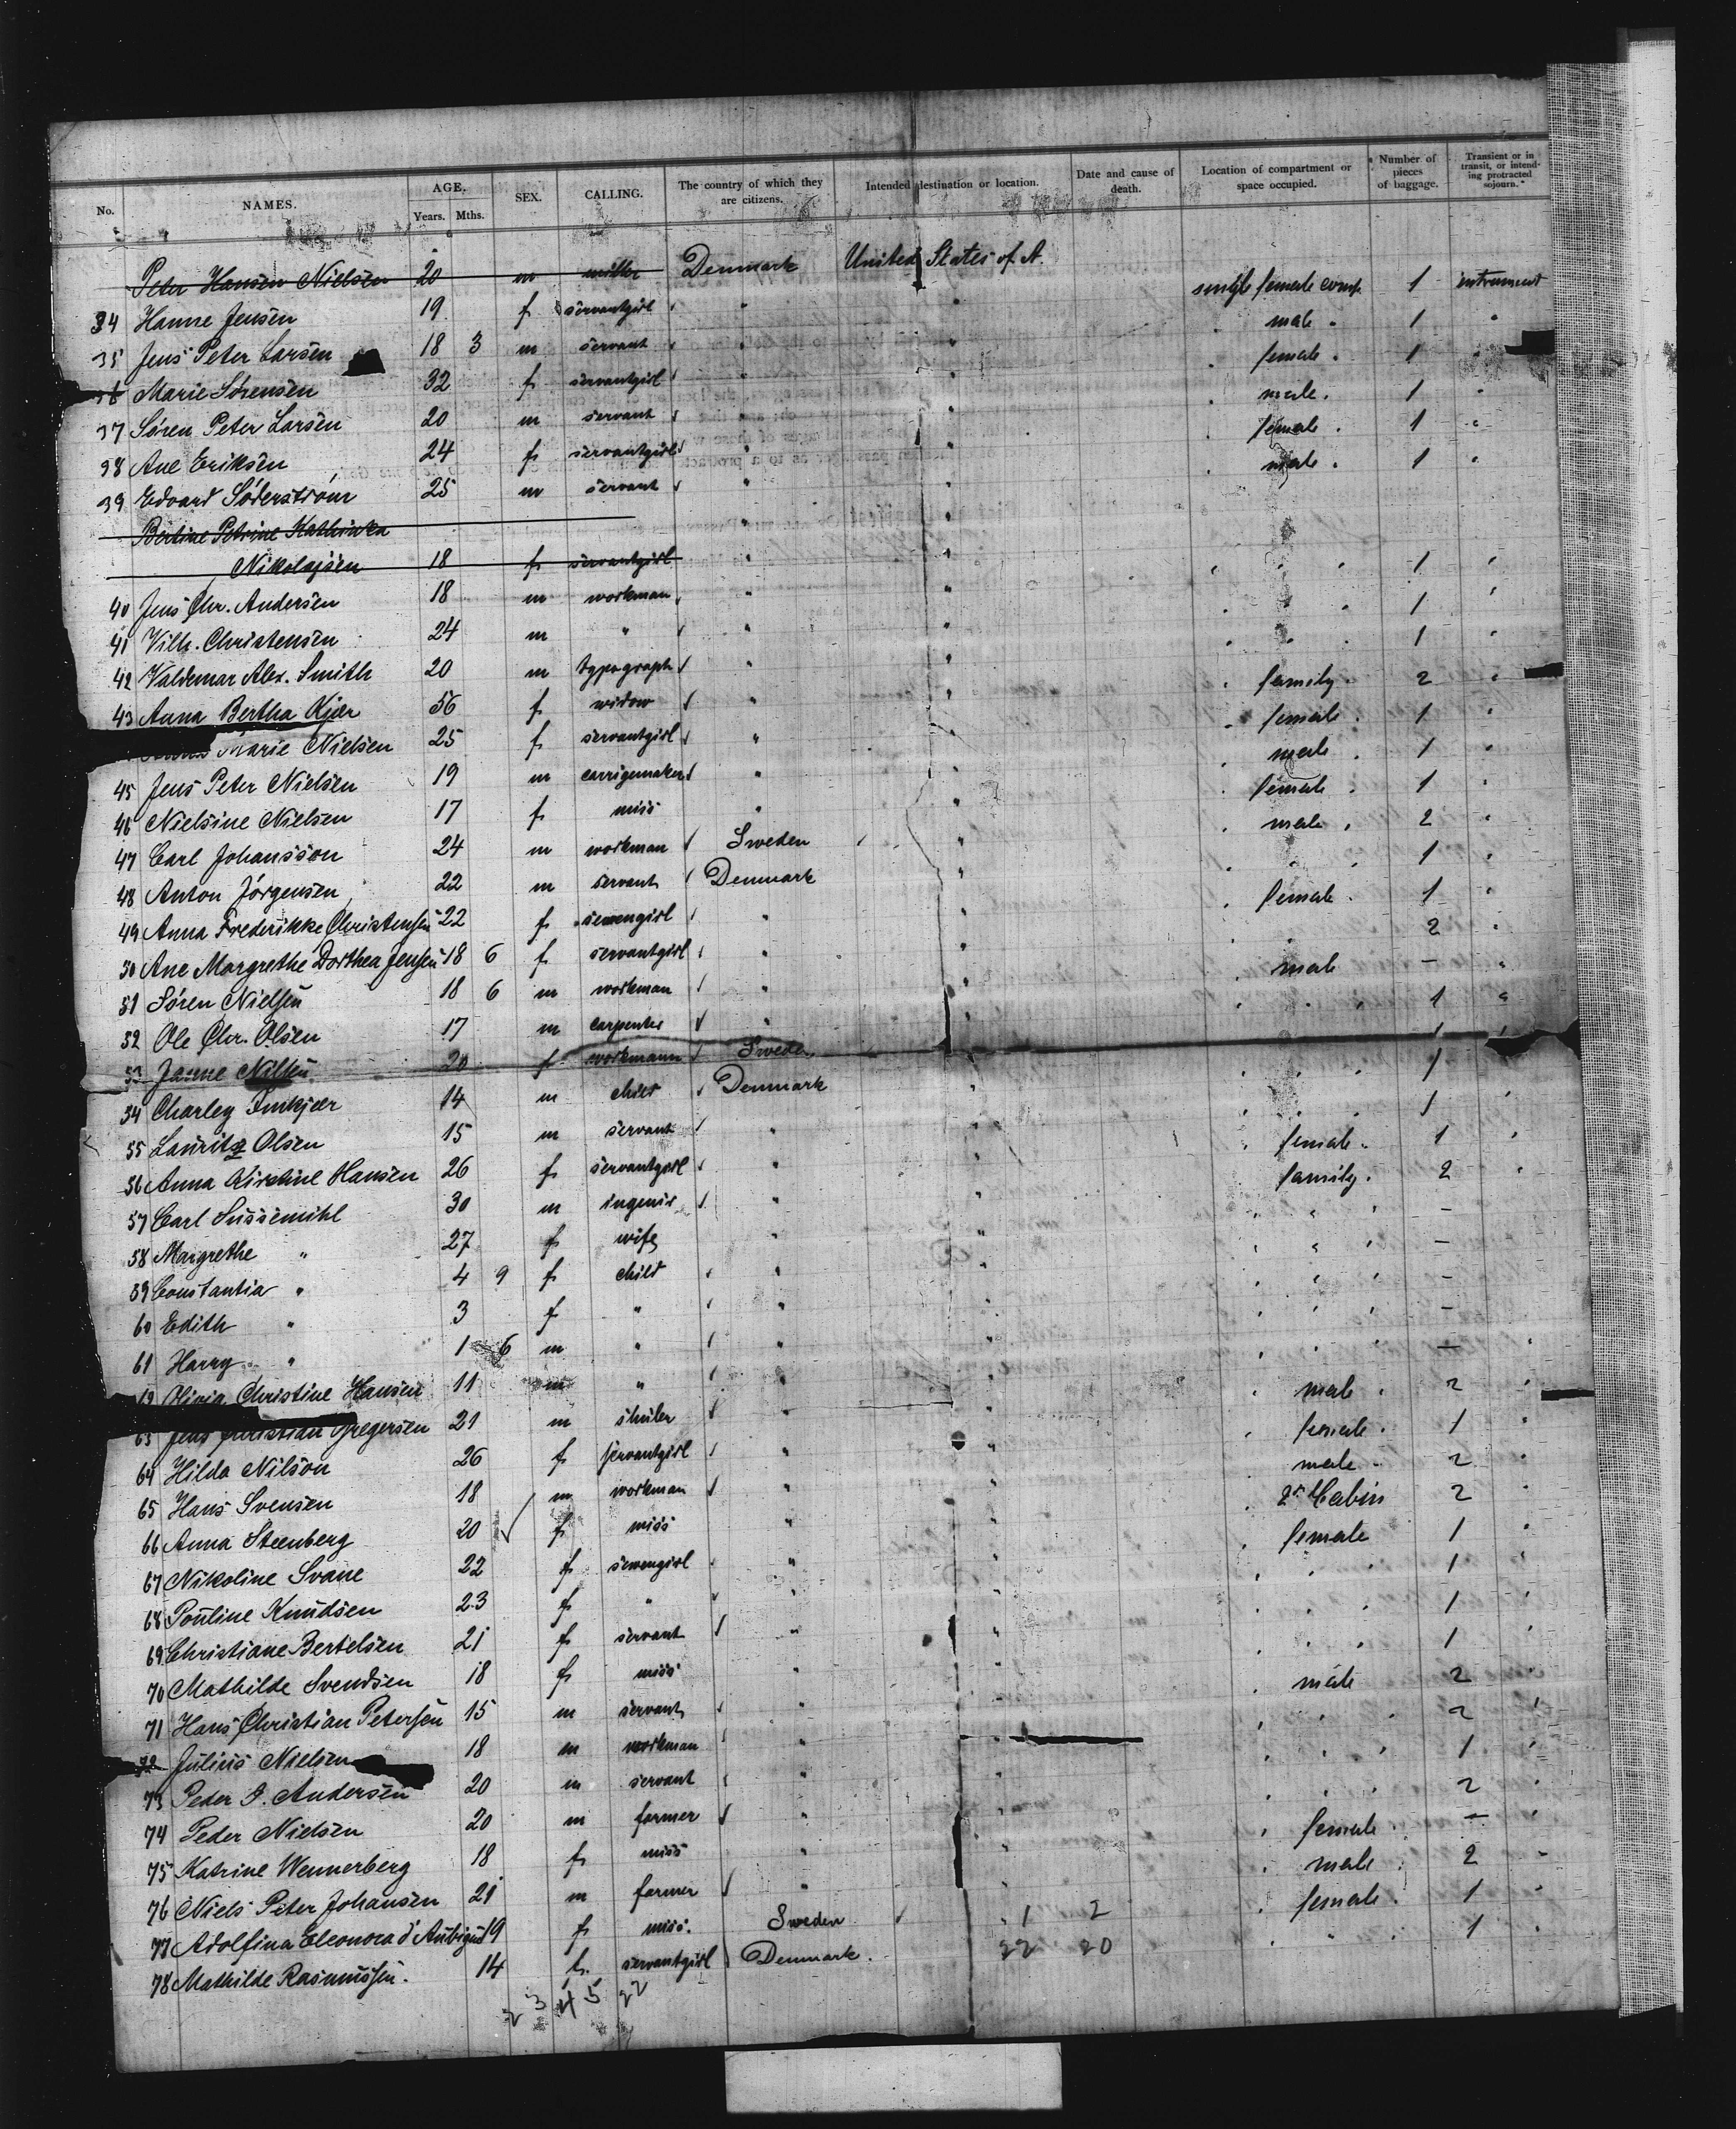 No. NAMES. AGE. Years. Mths. SEX. CALLING. The country of which they are citizens. Intended destination or location. Date and cause of death. Location of compartment or space occupied. Number of pieces of baggage. Transient or in transit, or intending protracted sojourn.*
Peter Hansen Nielsen 20 m miller Denmark United States of A.
34 Hanne Jensen 19 f servantgirl " " single female comp. 1
35 Jens Peter Larsen 18 3 m servant " " male " 1 "
36 Marie Sørensen 32 f servantgirl " " female " 1 "
37 Søren Peter Larsen 20 m servant " " male " 1 "
38 Ane Eriksen 24 f servantgirl " " female " 1 "
39 Edvard Söderström 25 m servant " " male " 1 "
Bertine Petrine Kathinka " "
Nikolajsen 18 f servantgirl " "
40 Jens Chr. Andersen 18 m workman " " " " " 1 "
41 Vilh. Christensen 24 m " " " " " 1 "
42 Valdemar Alex. Smith 20 m typograph " " " " " 1 "
43 Anna Bertha Kjær 56 f widow " " " family " 2 "
Marie Nielsen 25 f servantgirl " " female " 1 "
45 Jens Peter Nielsen 19 m carrigemaker " " male " 1 "
46 Nielsine Nielsen 17 f miss " " female " 1 "
47 Carl Johansson 24 m workman Sweden " male " 2 "
48 Anton Jörgensen 22 m servant Denmark " " " 1 "
49 Anna Frederikke Christensen 22 f sewengirl " " female " 1 "
50 Ane Margrethe Dorthea Jensen 18 6 f servantgirl " " " 2 "
51 Søren Nielsen 18 6 m workman " " male — "
52 Ole Chr. Olsen 17 m carpenter " " " " " 1 "
53 Janne Nilsen 20 f workmann Sweden 1
54 Charley 14 m child Denmark " " " 1
55 Lauritz Olsen 15 m servant " " " " 1 "
56 Anna Kirstine Hansen 26 f servantgirl " " " female " 1 "
57 Carl Sussemihl 30 m ingenir " " " family " 2 "
58 Margrethe " 27 f wife " " " " " —
59 Constantia " 4 9 f child " " " " " —
60 Edith " 3 f " " " " " " —
61 Harry " 1 6 m " " " " " " —
62 Olivia Christine Hansen 11 m " " " " " —
63 Jens Christian Gregersen 21 m " " " male " 2 "
64 Hilda Nilson 26 f servantgirl " " " female " 1 "
65 Hans Svensen 18 m workman " " male " 2 "
66 Anna Steenberg 20 f miss " " " 2. Cabin 2 "
67 Nikoline Svane 22 f sewengirl " " " female 1 "
68 Pouline Knudsen 23 f " " " " " 1 "
69 Christiane Bertelsen 21 f servant " " " " " 1 "
70 Mathilde Svendsen 18 f miss " " " " " 1 "
71 Hans Christian Petersen 15 m servant " " " male 2 "
72 Julius Nielsen 18 m workman " " " " " 2 "
73 Peder J. Andersen 20 m servant " " " " 1 "
74 Peder Nielsen 20 m farmer " " " " 2 "
75 Katrine Wennerberg 18 f miss " " " female " — "
76 Niels Peter Johansen 21 m farmer " " " male " 2 "
77 Adolfina Eleonora d'Aubigné 19 f miss. Sweden 1 2 " female " 1 "
78 Mathilde Rasmussen. 14 f. servantgirl Denmark. 22 20 " " " 1 "
2 3 4 5 22